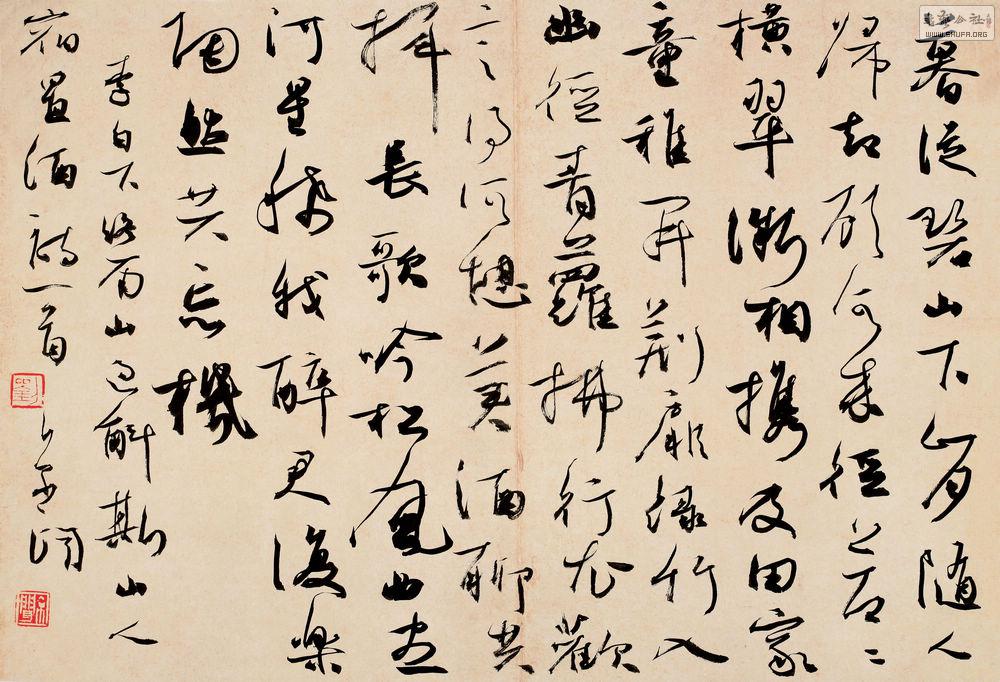 暮從碧山下山月随人
歸却顾所来徑蒼〻
橫翠微相攜及田家
童稚開荆扉緑竹入
幽徑青蘿拂行衣歡
言得所憩美酒聊共
揮長歌吟松風曲盡
河星稀我醉君復樂
陶然共忘機
李白下終南山過斛斯山人
宿置酒詩一首
劉
WWW.SHUFA.ORG